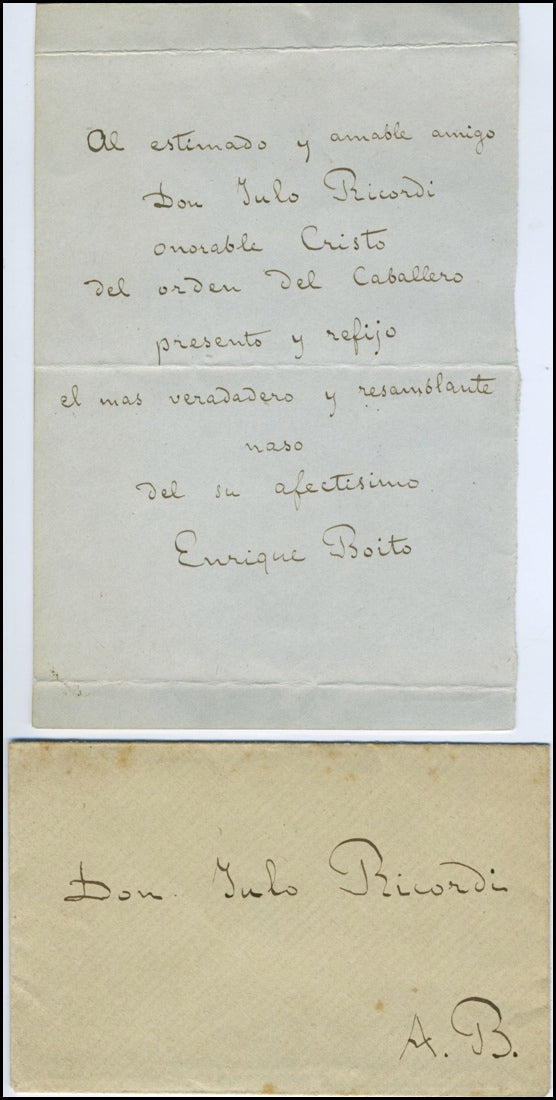 Al estimado y amable amigo
Don Julo Ricordi
onorable Cristo
del orden del Caballero
presento y refijo
el mas veradadero y resamblante
naso
del su afectisimo
Enrique Boito
Don Julo Ricordi
A. B.